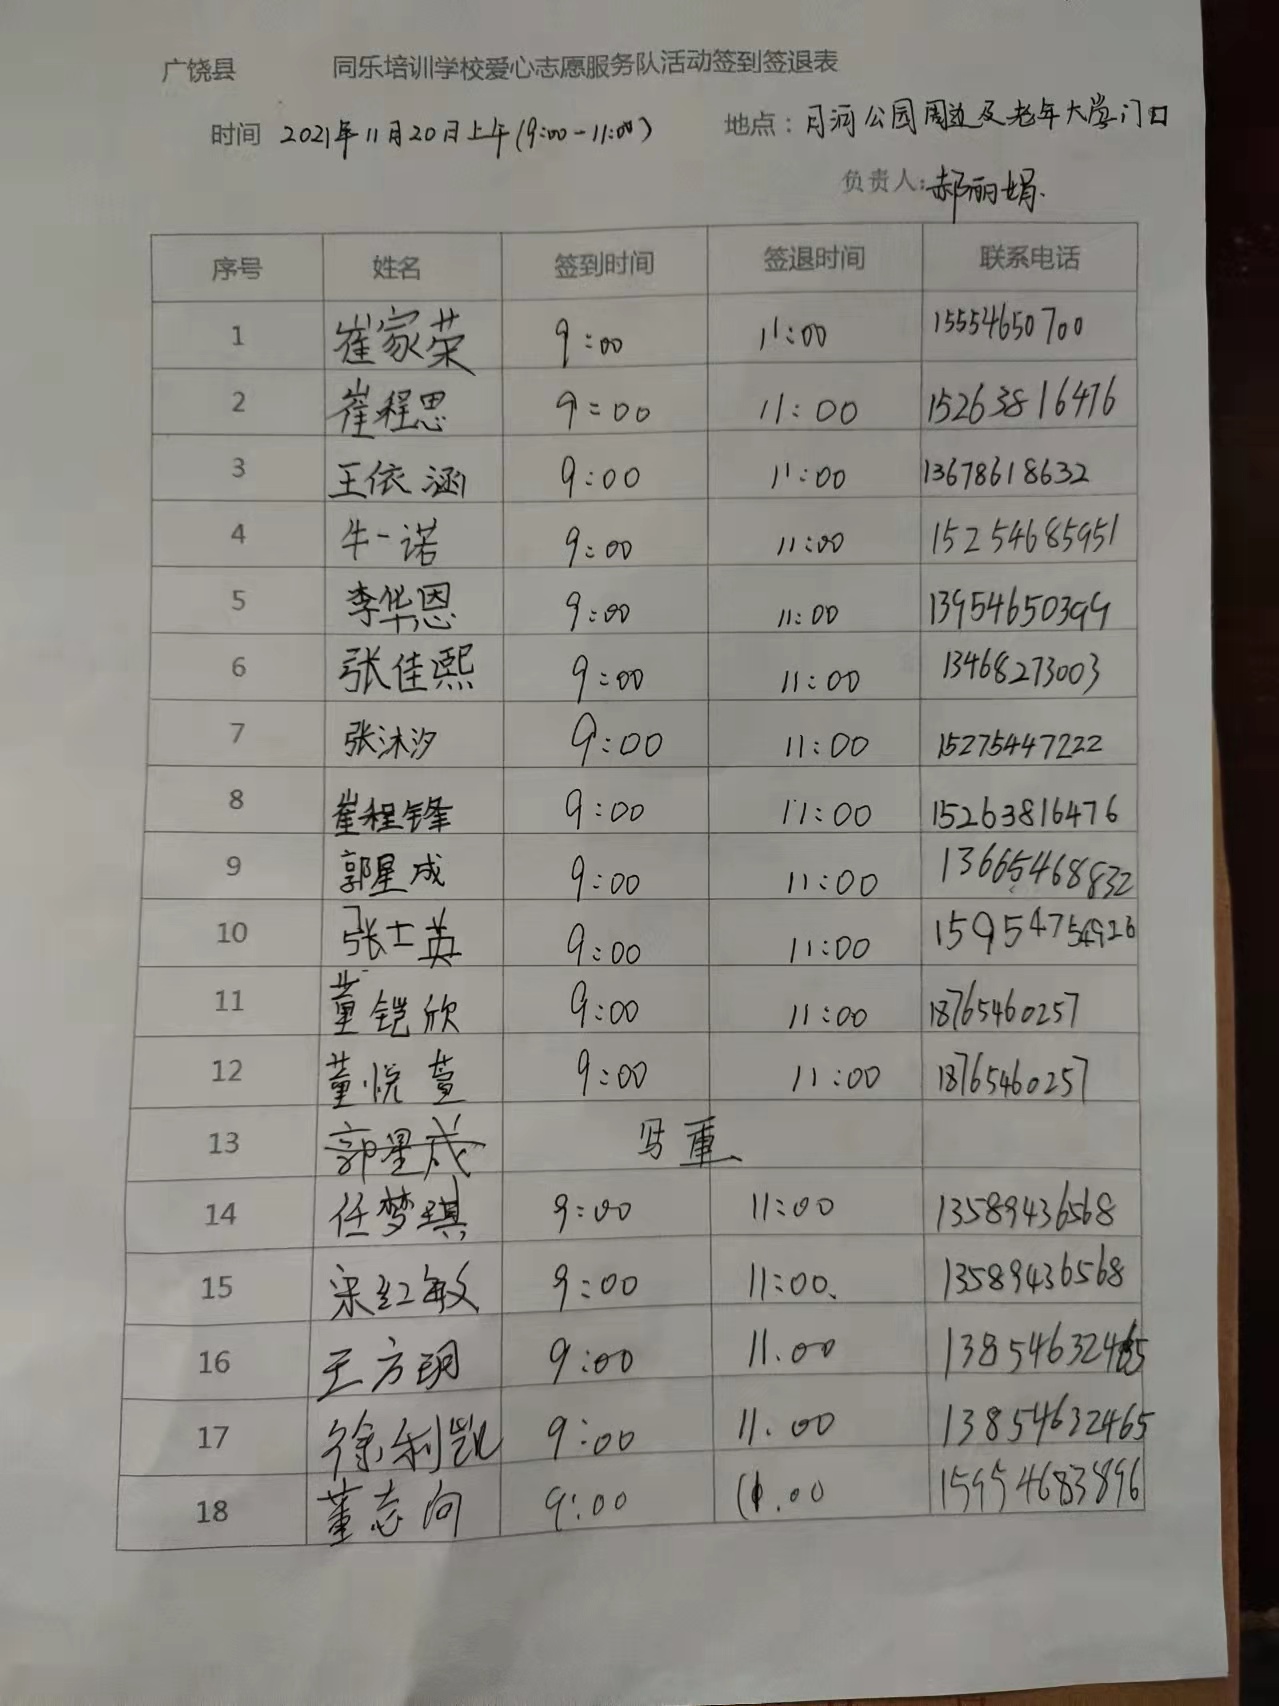 广饶县 同乐培训学校爱心志愿服务队活动签到签退表
时间 2021年11月20日上午(9:00-11:00) 地点：月河公园周边及老年大学门口
负责人：郝丽娟.
序号 姓名 签到时间 签退时间 联系电话
1 崔家荣 9:00 11:00 15554650700
2 崔程思 9:00 11:00 15263816476
3 王依涵 9:00 11:00 13678618632
4 牛一诺 9:00 11:00 15254685951
5 李华恩 9:00 11:00 13954650399
6 张佳熙 9:00 11:00 13468273003
7 张沐汐 9:00 11:00 15275447222
8 崔程锋 9:00 11:00 15263816476
9 郭星成 9:00 11:00 13665468832
10 张士英 9:00 11:00 15954754926
11 董铠欣 9:00 11:00 18765460257
12 董悦萱 9:00 11:00 18765460257
13 郭星成 写重
14 任梦琪 9:00 11:00 13589436568
15 宋红敏 9:00 11:00 13589436568
16 王方玥 9:00 11.00 13854632465
17 徐利凯 9:00 11.00 13854632465
18 董志向 9:00 11.00 15954683896